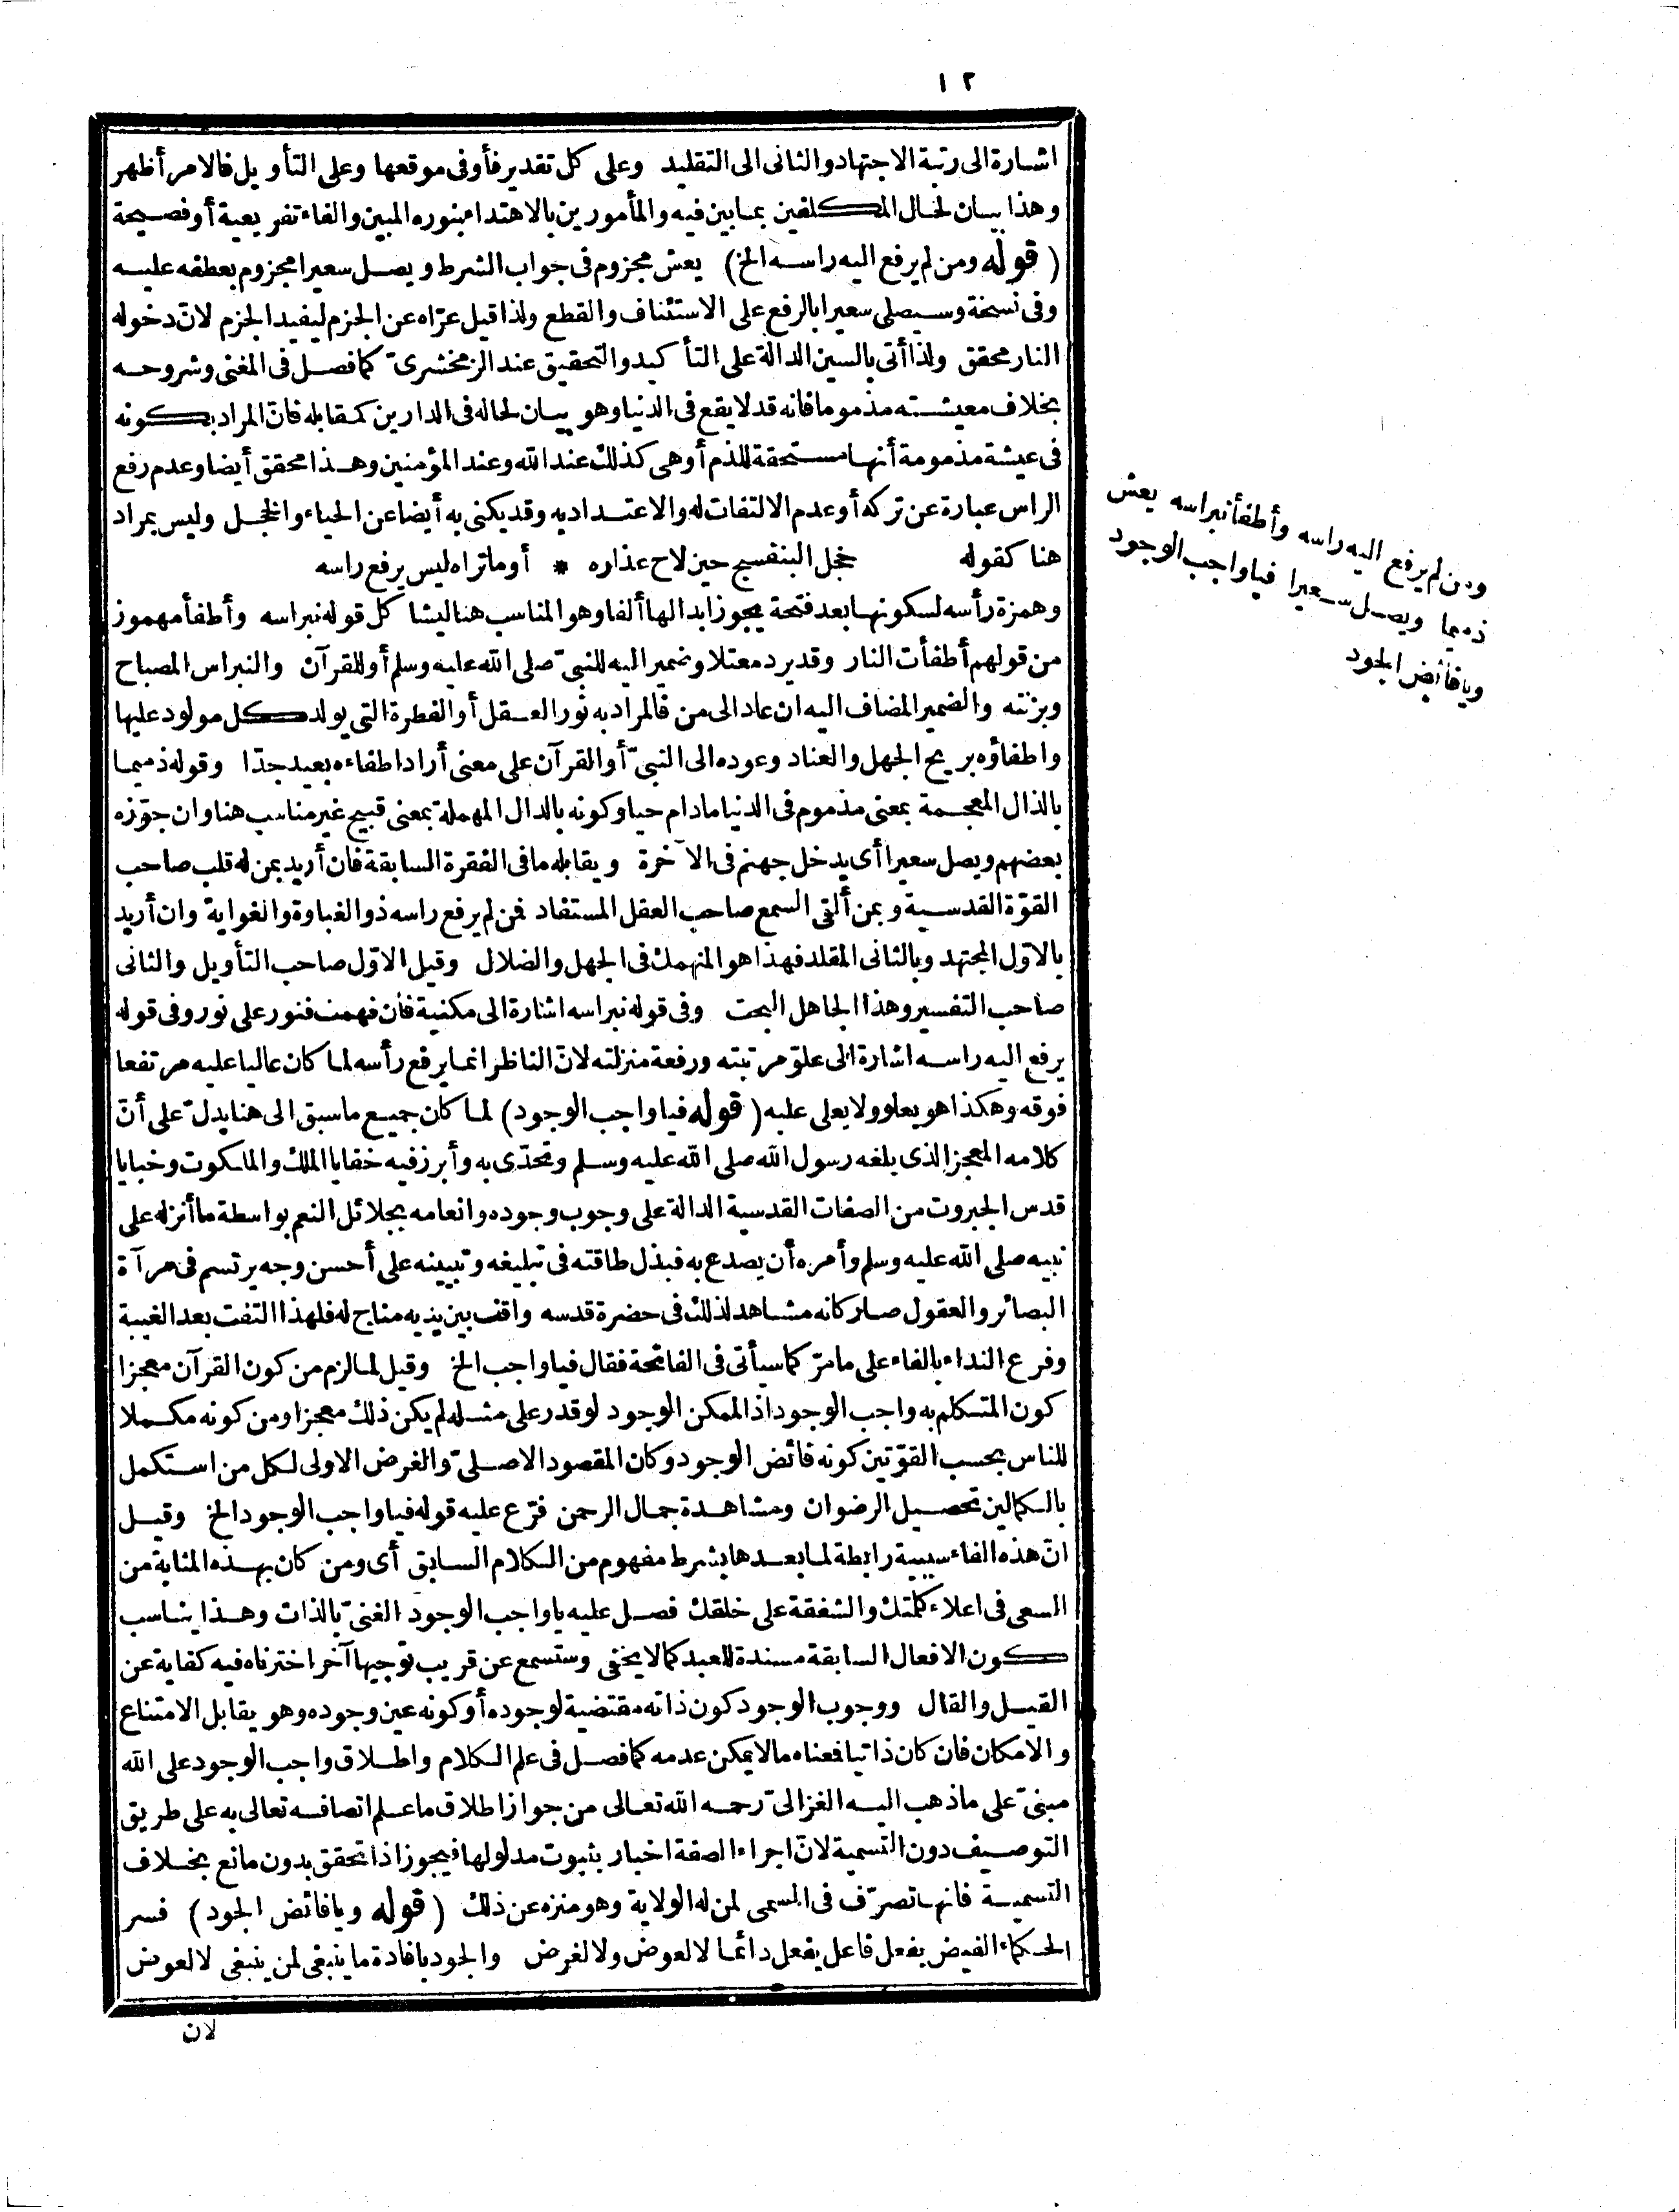 ١٢
اشارة الى رتبة الاجتهاد والثانى الى التقليد وعلى كل تقدير فأو فى موقعها وعلى التأويل فالامر أظهر
وهذا بيان لحال المكلفين بما بين فيه والمأمورين بالاهتداء بنوره المبين والفاء تفريعية أو فصيحة
(قوله ومن لم يرفع اليه راسه الخ) يعش مجزوم فى جواب الشرط ويصل سعيرا مجزوم بعطفه عليه
وفى نسخة وسيصلى سعيرا بالرفع على الاستئناف والقطع ولذا قيل عرّاه عن الجزم ليفيد الجزم لانّ دخوله
النار محقق ولذا أتى بالسين الدالة على التأكيد والتحقيق عند الزمخشرىّ كما فصل فى المغنى وشروحه
بخلاف معيشته مذموما فانه قد لا يقع فى الدنيا وهو بيان لحاله فى الدارين كمقابله فانّ المراد بكونه
فى عيشة مذمومة أنها مستحقة للذم أو هى كذلك عند الله وعند المؤمنين وهذا محقق أيضا وعدم رفع
الراس عبارة عن تركه أو عدم الالتفات له والاعتداد به وقد يكنى به أيضا عن الحياء والخجل وليس بمراد
هنا كقوله خجل البنفسج حين لاح عذاره * أو ما تراه ليس يرفع راسه
وهمزة رأسه لسكونها بعد فتحة يجوز ابدالها ألفا وهو المناسب هنا ليشاكل قوله نبراسه وأطفأ مهموز
من قولهم أطفأت النار وقد يرد معتلا وضمير اليه للنبىّ صلى الله عليه وسلم أو للقرآن والنبراس المصباح
وبزنته والضمير المضاف اليه ان عاد الى من فالمراد به نور العقل أو الفطرة التى يولد كل مولود عليها
واطفاؤه بريح الجهل والعناد وعوده الى النبىّ أو القرآن على معنى أراد اطفاءه بعيد جدّا وقوله ذميما
بالذال المعجمة بمعنى مذموم فى الدنيا مادام حيا وكونه بالدال المهملة بمعنى قبيح غير مناسب هنا وان جوّزه
بعضهم ويصل سعيرا أى يدخل جهنم فى الآخرة ويقابله ما فى الفقرة السابقة فان أريد بمن له قلب صاحب
القوّة القدسية وبمن ألقى السمع صاحب العقل المستفاد فمن لم يرفع راسه ذو الغباوة والغواية وان أريد
بالاوّل المجتهد وبالثانى المقلد فهذا هو المنهمك فى الجهل والضلال وقيل الاوّل صاحب التأويل والثانى
صاحب التفسير وهذا الجاهل البحت وفى قوله نبراسه اشارة الى مكنية فان فهمت فنور على نور وفى قوله
يرفع اليه راسه اشارة الى علوّ مرتبته ورفعة منزلته لانّ الناظر انما يرفع رأسه لما كان عاليا عليه مرتفعا
فوقه وهكذا هو يعلو ولا يعلى عليه (قوله فيا واجب الوجود) لما كان جميع ما سبق الى هنا يدلّ على أنّ
كلامه المعجز الذى بلغه رسول الله صلى الله عليه وسلم وتحدّى به وأبرز فيه خفايا الملك والملكوت وخبايا
قدس الجبروت من الصفات القدسية الدالة على وجوب وجوده وانعامه بجلائل النعم بواسطة ما أنزله على
نبيه صلى الله عليه وسلم وأمره أن يصدع به فبذل طاقته فى تبليغه وتبيينه على أحسن وجه يرتسم فى مرآة
البصائر والعقول صار كانه مشاهد لذلك فى حضرة قدسه واقف بين يديه مناج له فلهذا التفت بعد الغيبة
وفرع النداء بالفاء على ما مرّ كما سيأتى فى الفاتحة فقال فيا واجب الخ وقيل لما لزم من كون القرآن معجزا
كون المتكلم به واجب الوجود اذ الممكن الوجود لو قدر على مثله لم يكن ذلك معجزا ومن كونه مكملا
للناس بحسب القوّتين كونه فائض الوجود وكان المقصود الاصلىّ والغرض الاولى لكل من استكمل
بالكمالين تحصيل الرضوان ومشاهدة جمال الرحمن فرّع عليه قوله فيا واجب الوجود الخ وقيل
انّ هذه الفاء سببية رابطة لما بعدها بشرط مفهوم من الكلام السابق أى ومن كان بهذه المثابة من
السعى فى اعلاء كلمتك والشفقة على خلقك فصل عليه يا واجب الوجود الغنىّ بالذات وهذا يناسب
كون الافعال السابقة مسندة للعبد كما لا يخفى وستسمع عن قريب توجيها آخر اخترناه فيه كفاية عن
القيل والقال ووجوب الوجود كون ذاته مقتضية لوجوده أو كونه عين وجوده وهو يقابل الامتناع
والامكان فان كان ذاتيا فمعناه ما لا يمكن عدمه كما فصل فى علم الكلام واطلاق واجب الوجود على الله
مبنىّ على ما ذهب اليه الغزالىّ رحمه الله تعالى من جواز اطلاق ما علم اتصافه تعالى به على طريق
التوصيف دون التسمية لانّ اجراء الصفة اخبار بثبوت مدلولها فيجوز اذا تحقق بدون مانع بخلاف
التسمية فانها تصرّف فى المسمى لمن له الولاية وهو منزه عن ذلك (قوله ويا فائض الجود) فسر
الحكماء الفيض بفعل فاعل يفعل دائما لا لعوض ولا لغرض والجود بافادة ما ينبغى لمن ينبغى لا لعوض
لان
ومن لم يرفع اليه راسه وأطفأ نبراسه يعش
ذميما ويصل سعيرا فيا واجب الوجود
ويا فائض الجود